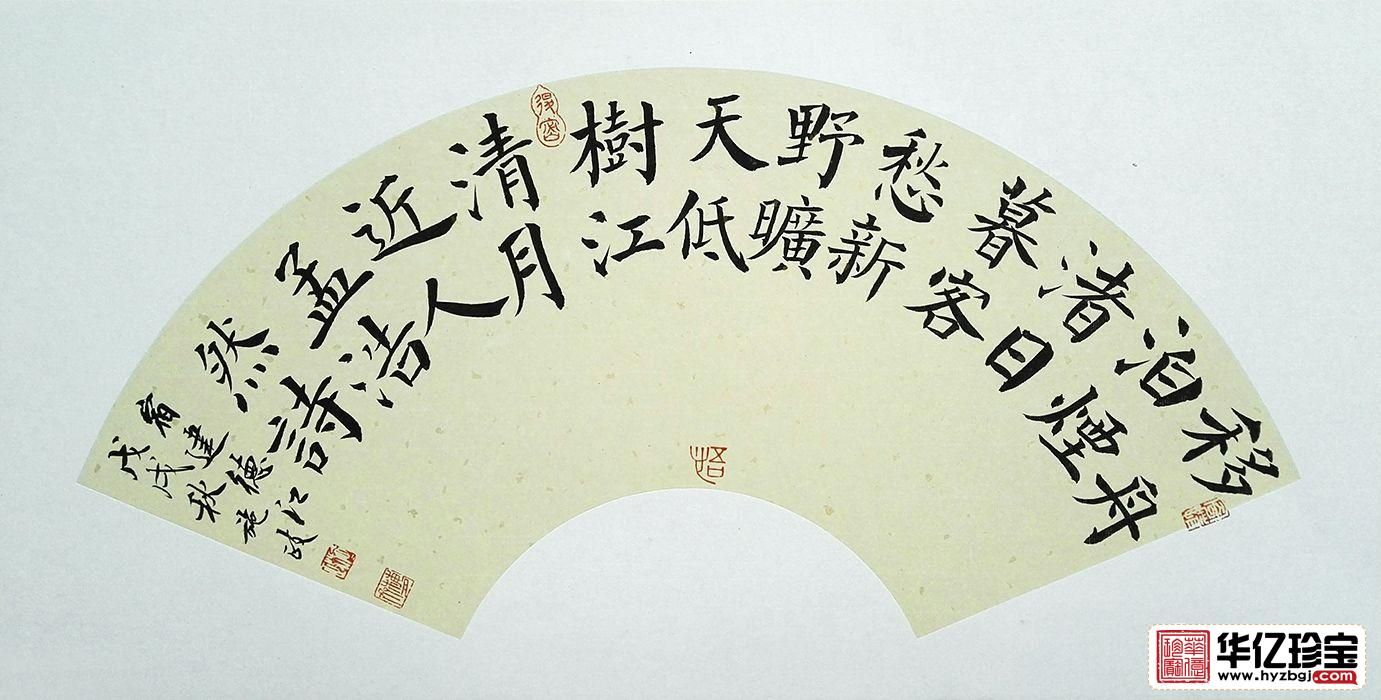 移舟
泊煙
渚日
暮客
愁新
野曠
天低
樹江
清月
近人
孟浩
然詩
宿建德江
戊戌秋施政
华亿珍宝
www.hyzbgj.com